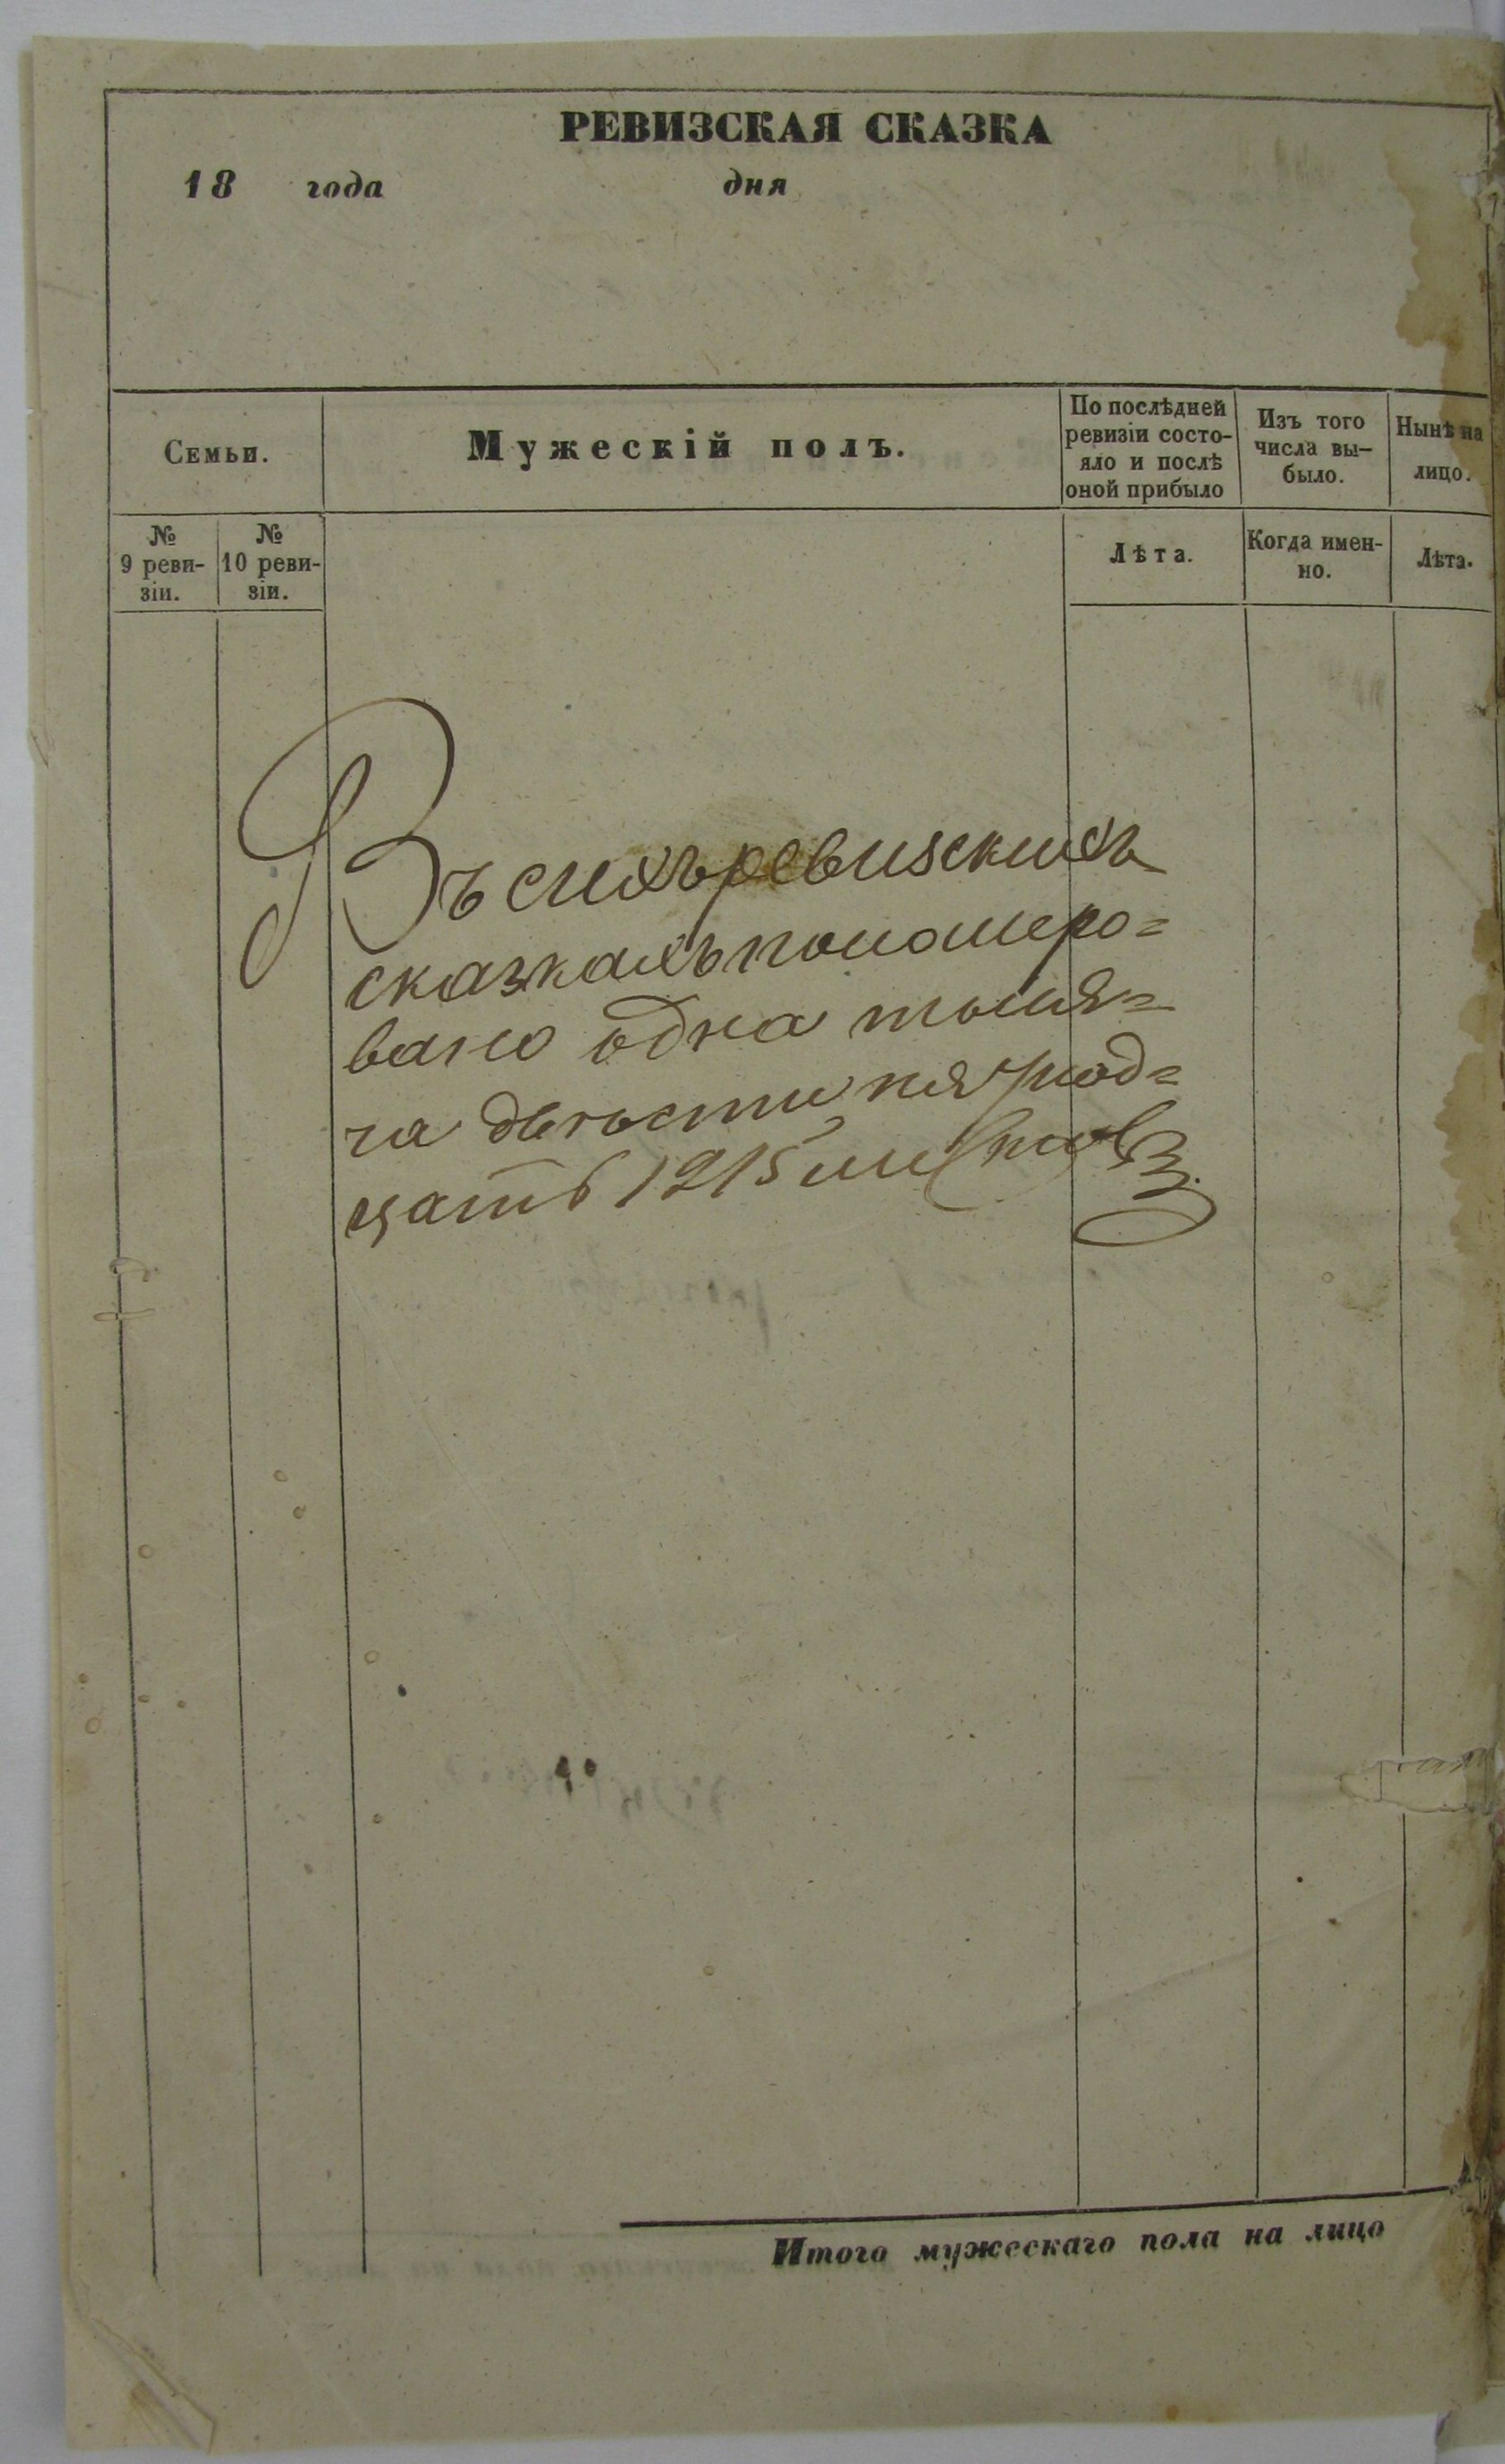 РЕВИЗСКАЯ СКАЗКА
18 года дня
Семьи.
Мужескій полъ.
По послѣдней
ревизіи состо-
яло и послѣ
оной прибыло
Изъ того
числа вы-
было.
Нынѣ на
лицо.
№
9 реви-
зіи.
№
10 реви-
зіи.
Лѣта.
Когда имен-
но.
Лѣта.
Въ сихъ ревизскихъ
сказкахъ пономеро=
вано одна тыся=
ча двѣсти пятнад=
цать 1215 листовъ.
Итого мужескаго пола на лицо